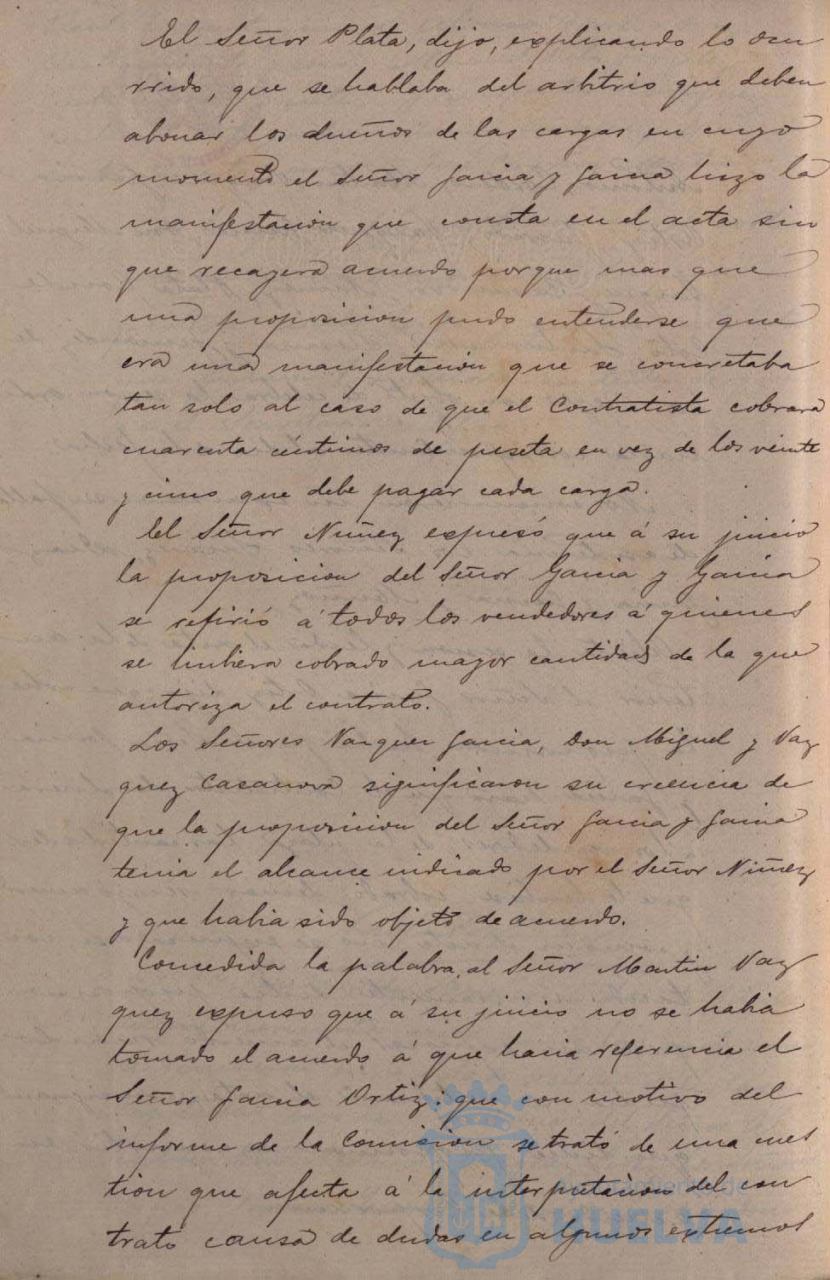 El Señor Plata, dijo, explicando lo ocu
rrido, que se hablaba del arbitrio que deben
abonar los dueños de las cargas en cuyo
momento el Señor Garcia y Garcia hizo la
manifestación que consta en el acta sin
que recayera acuerdo porque mas que
una proposicion pudo entenderse que
era una manifestación que se concretaba
tan solo al caso de que el Contratista cobrara
cuarenta céntimos de peseta en vez de los veinte
y cinco que debe pagar cada carga.
El Señor Nuñez expresó que á su juicio
la proposicion del Señor Garcia y Garcia
se refirió á todos los vendedores á quienes
se hubiera cobrado mayor cantidad de la que
autoriza el contrato.
Los Señores Vazquez Garcia, Don Miguel y Vaz
quez Casanova significaron su creencia de
que la proposicion del Señor Garcia y Garcia
tenia el alcance indicado por el Señor Nuñez
y que habia sido objeto de acuerdo.
Concedida la palabra al Señor Martin Vaz
quez expuso que á su juicio no se habia
tomado el acuerdo á que hacia referencia el
Señor Garcia Ortiz: que con motivo del
informe de la Comision se trató de una cues
tion que afecta á la interpretación del con
trato causa de dudas en algunos extremos
HUELVA